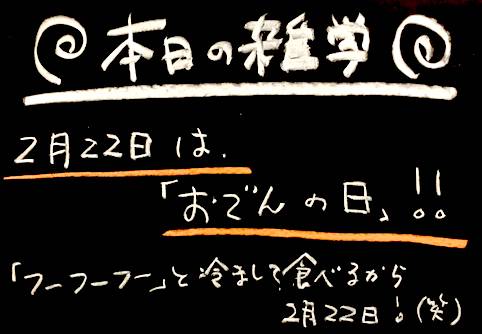 本日の雑学
2月22日は、
「おでんの日」!!
「フーフーフー」と冷まして食べるから
2月22日!(笑)